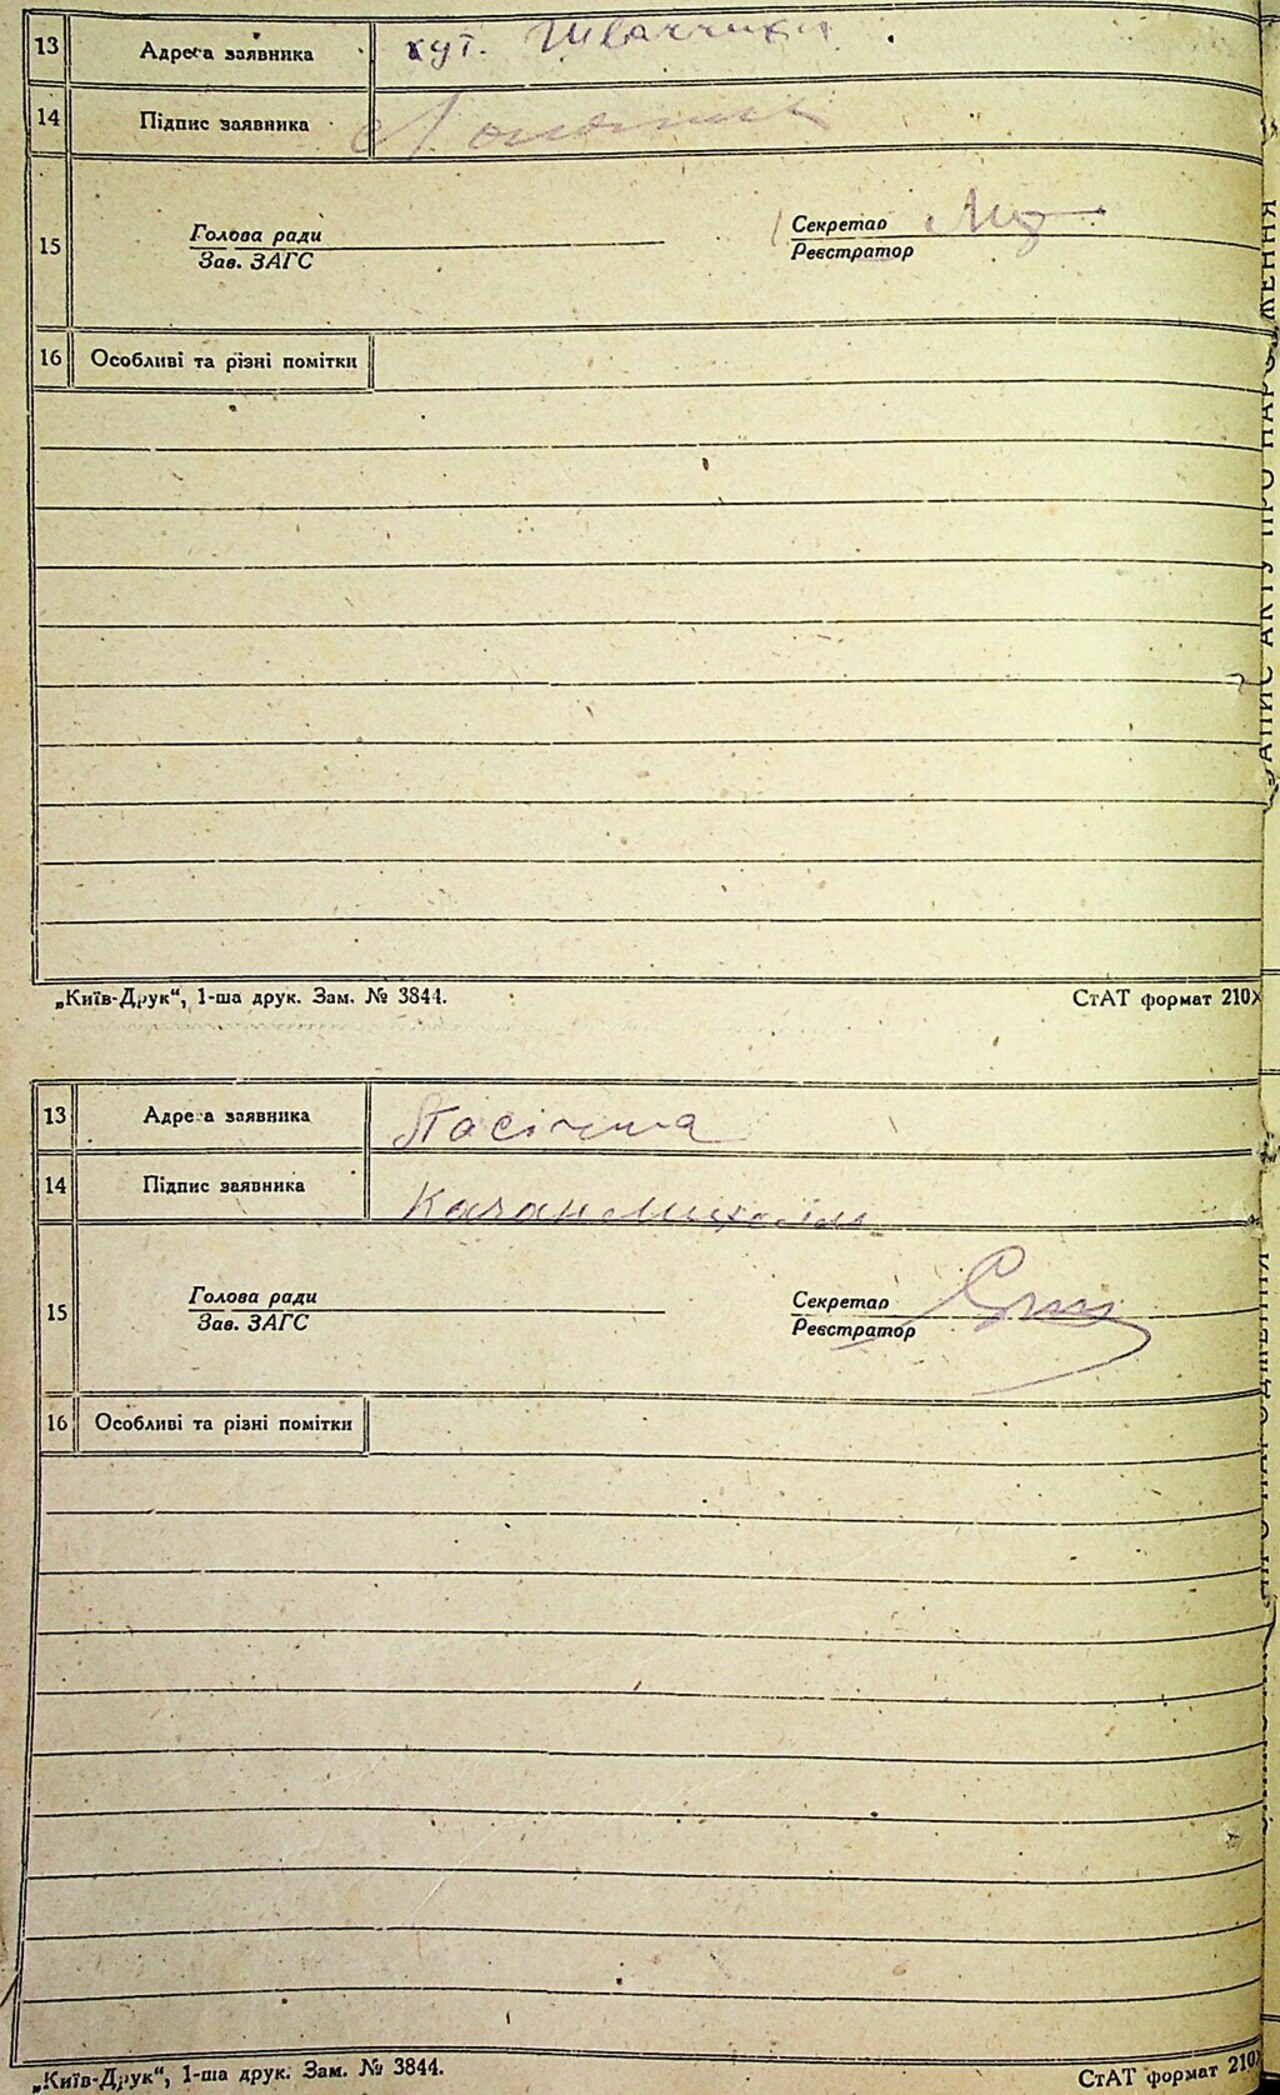 13 Адреса заявника хут.
14 Підпис заявника
15 Голова ради Секретар
Зав. ЗАГС Реєстратор
16 Особливі та різні помітки
„Київ-Друк“, 1-ша друк. Зам. № 3844. СтАТ формат 210X
13 Адреса заявника Пасічна
14 Підпис заявника Качан Михаіл
15 Голова ради Секретар
Зав. ЗАГС Реєстратор
16 Особливі та різні помітки
„Київ-Друк“, 1-ша друк. Зам. № 3844. СтАТ формат 210X
ЗАПИС АКТУ ПРО НАРОДЖЕННЯ